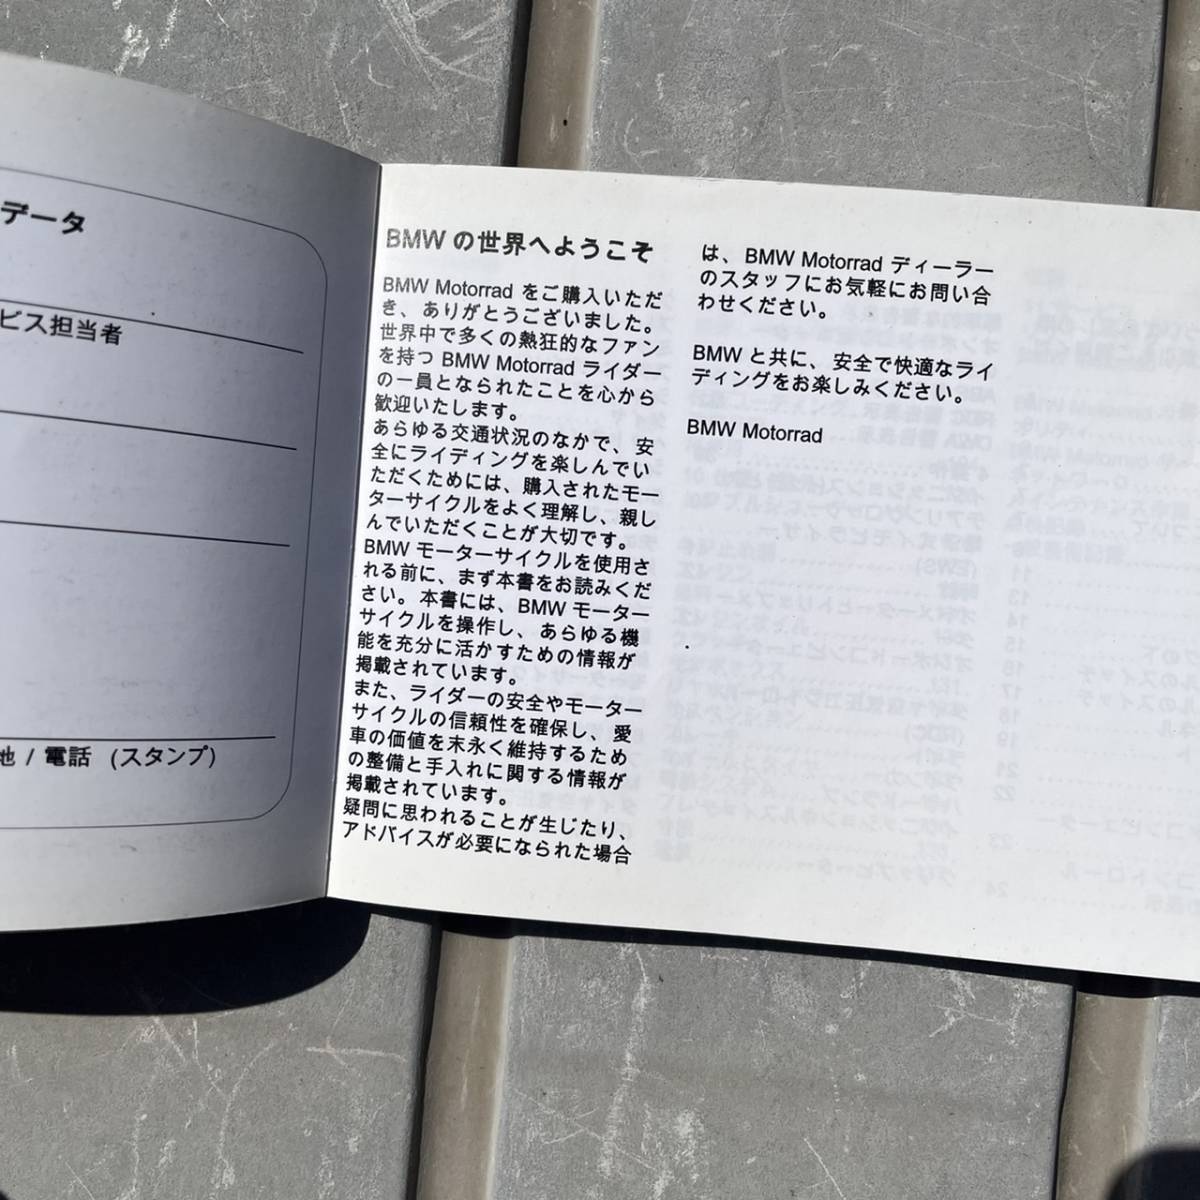 データ
ビス担当者
地 / 電話 (スタンプ)
BMW の世界へようこそ
BMW Motorrad をご購入いただ
き、ありがとうございました。
世界中で多くの熱狂的なファン
を持つ BMW Motorrad ライダー
の一員となられたことを心から
歓迎いたします。
あらゆる交通状況のなかで、安
全にライディングを楽しんでい
ただくためには、購入されたモー
ターサイクルをよく理解し、親し
んでいただくことが大切です。
BMW モーターサイクルを使用さ
れる前に、まず本書をお読みくだ
さい。本書には、BMW モーター
サイクルを操作し、あらゆる機
能を充分に活かすための情報が
掲載されています。
また、ライダーの安全やモーター
サイクルの信頼性を確保し、愛
車の価値を末永く維持するため
の整備と手入れに関する情報が
掲載されています。
疑問に思われることが生じたり、
アドバイスが必要になられた場合
は、BMW Motorrad ディーラー
のスタッフにお気軽にお問い合
わせください。
BMW と共に、安全で快適なライ
ディングをお楽しみください。
BMW Motorrad